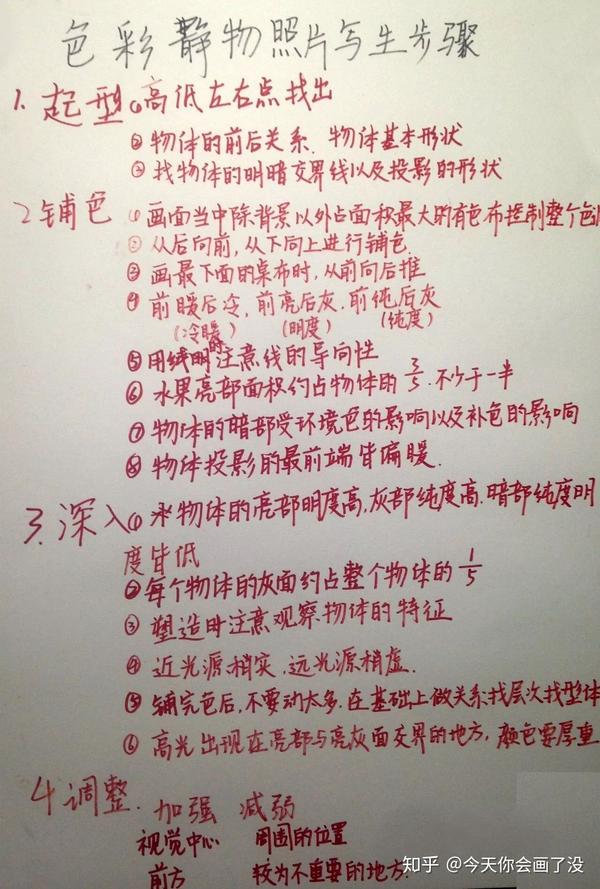 色彩静物照片写生步骤
1. 起型 ①高低左右点找出
②物体的前后关系、物体基本形状
③找物体的明暗交界线以及投影的形状
2 铺色 ①画面当中除背景以外占面积最大的有色布控制整个色
②从后向前,从下向上进行铺色.
③画最下面的桌布时,从前向后推
④前暖后冷,前亮后灰.前纯后灰
(冷暖) (明度) (纯度)
⑤用线时注意线的导向性
⑥水果亮部面积约占物体的 3/5.不少于一半
⑦物体的暗部受环境色的影响以及补色的影响
⑧物体投影的最前端皆偏暖.
3.深入 ①物体的亮部明度高,灰部纯度高.暗部纯度明
度皆低
②每个物体的灰面约占整个物体的 1/5
③塑造时注意观察物体的特征
④近光源稍实,远光源稍虚.
⑤铺完色后,不要动太多.在基础上做关系找层次找型体
⑥高光出现在亮部与亮灰面交界的地方,颜色要厚重
4 调整. 加强 减弱
视觉中心 周围的位置
前方 较为不重要的地方.
知乎 @今天你会画了没